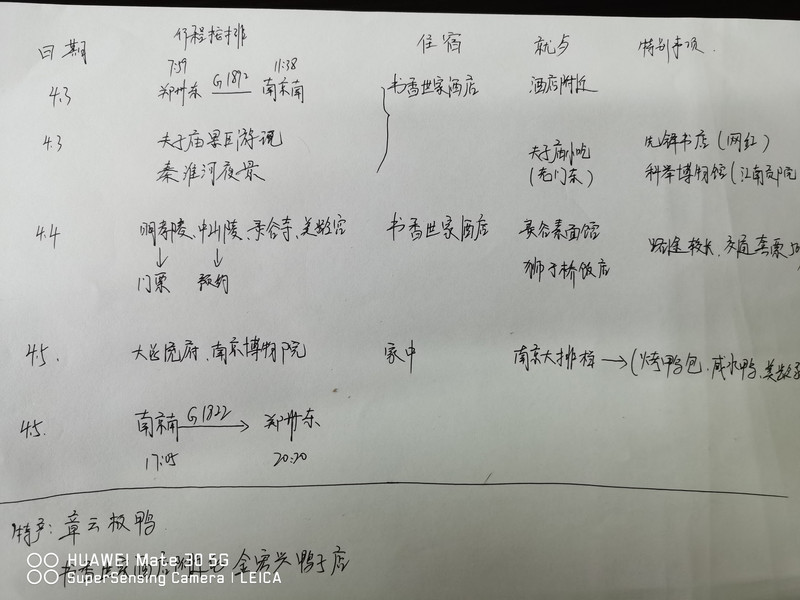 日期 行程按排 住宿 就与 特别事项
7:59 11:38
4.3 郑州东 G1892 南京南 书香世家酒店 酒店附近
4.3 夫子庙景区游玩 夫子庙小吃 先锋书店(网红)
秦淮河夜景 (老门东) 科举博物馆(江南贡院
4.4 明孝陵、中山陵、灵谷寺、美龄宫 书香世家酒店 灵谷素面馆 路途较长、交通
门票 预约 狮子桥饭店
4.5. 大总统府、南京博物院 家中 南京大排档 →(烤鸭包、咸水鸭、美龄
4.5. 南京南 G1822 郑州东
17:05 20:20
特产:章云板鸭
书香世家酒店附近 金宏兴鸭子店
HUAWEI Mate 30 5G
SuperSensing Camera | LEICA